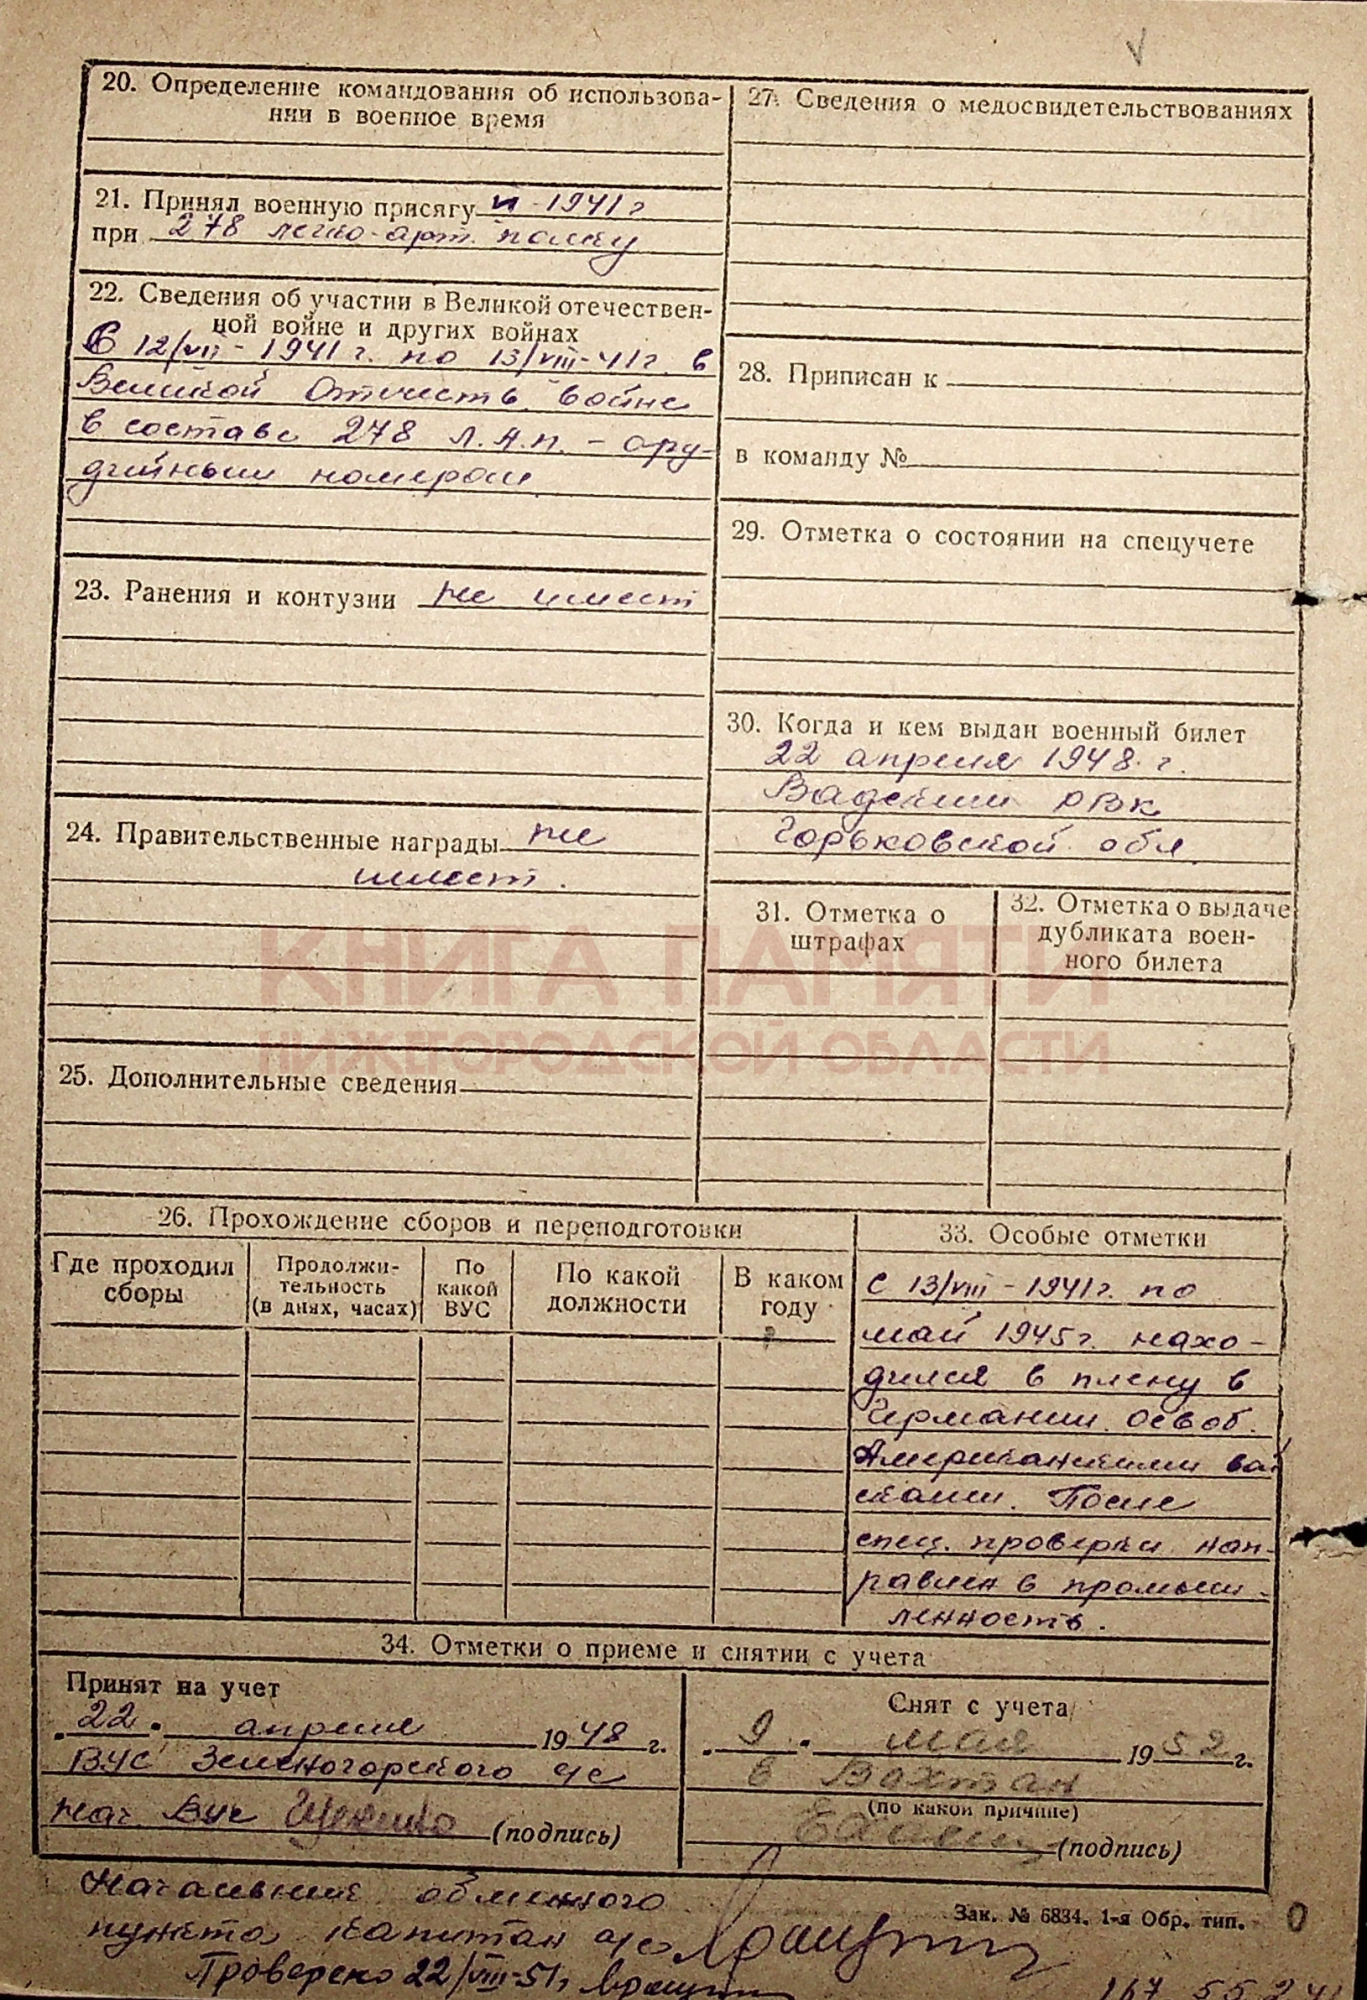 20. Определение командования об использова-
нии в военное время
21. Принял военную присягу 1941 г
при 278 легко-арт. полку
22. Сведения об участии в Великой отечествен-
ной войне и других войнах
С 12/VII - 1941 г. по 13/VIII-41 г. в
Великой Отечеств. войне
в составе 278 Л.А.П. - ору-
дийным номером
23. Ранения и контузии не имеет
24. Правительственные награды не
имеет.
25. Дополнительные сведения
26. Прохождение сборов и переподготовки
Где проходил
сборы
Продолжи-
тельность
(в днях, часах)
По
какой
ВУС
По какой
должности
В каком
году
27. Сведения о медосвидетельствованиях
28. Приписан к
в команду №
29. Отметка о состоянии на спецучете
30. Когда и кем выдан военный билет
22 апреля 1948 г.
Вадским РВК
Горьковской обл
31. Отметка о
штрафах
32. Отметка о выдаче
дубликата воен-
ного билета
КНИГА ПАМЯТИ
НИЖЕГОРОДСКОЙ ОБЛАСТИ
33. Особые отметки
С 13/VIII - 1941 г. по
май 1945 г. нахо-
дился в плену в
Германии. освоб.
Американскими вой
сками. После
спец. проверки нап-
равлен в промыш-
ленность.
34. Отметки о приеме и снятии с учета
Принят на учет
22 апреля 1948 г.
ВУС Зеленогорского с/с
Нач. ВУС (подпись)
Снят с учета
9 мая 1952 г.
в Вахтан
(по какой причине)
(подпись)
Начальник обменного
пункта капитан а/с
Зак. № 6834. 1-я Обр. тип.
Проверено 22/VIII-51 г.